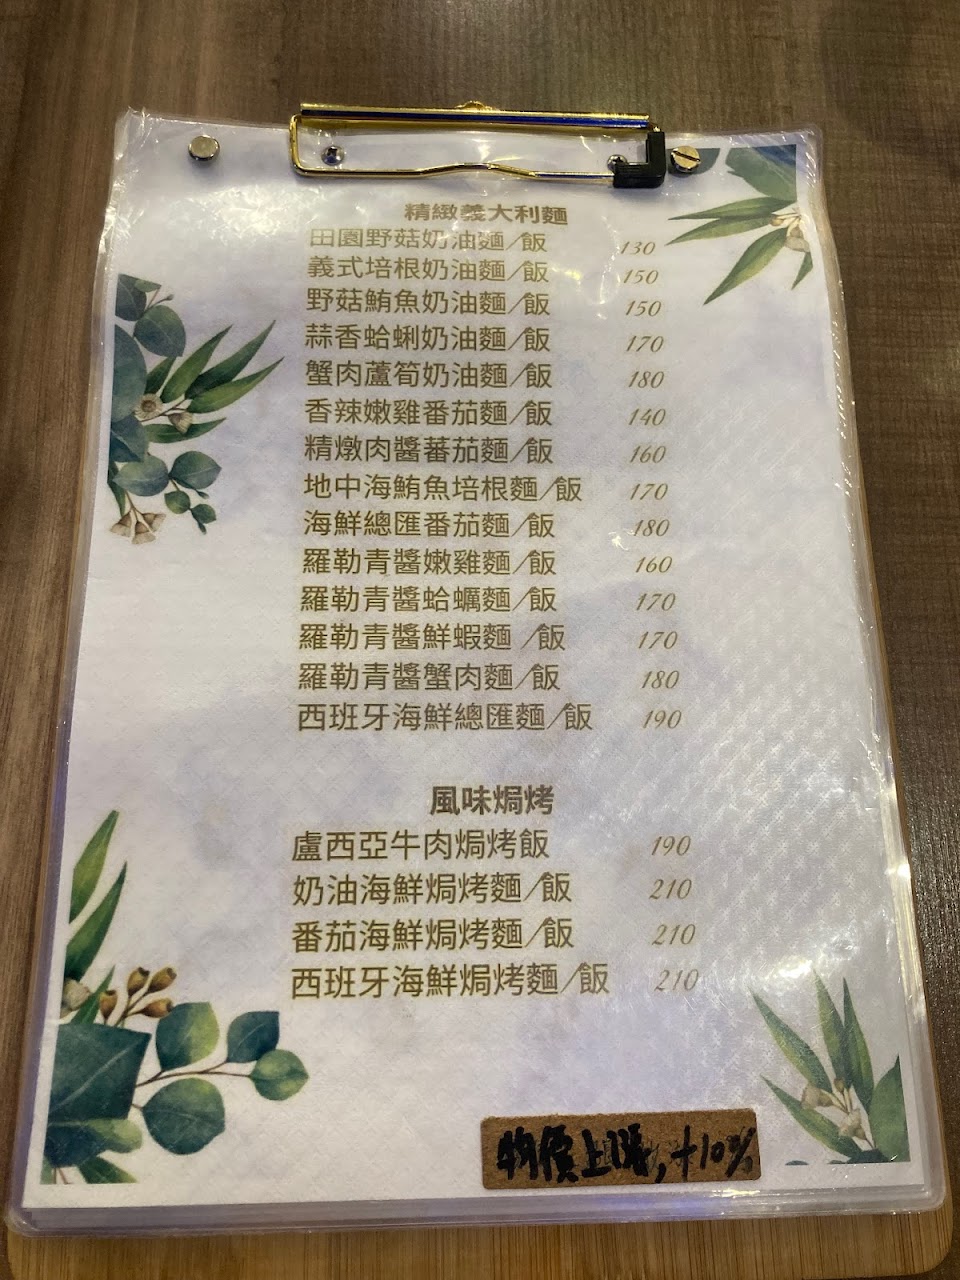 精緻義大利麵
田園野菇奶油麵/飯 130
義式培根奶油麵/飯 150
野菇鮪魚奶油麵/飯 150
蒜香蛤蜊奶油麵/飯 170
蟹肉蘆筍奶油麵/飯 180
香辣嫩雞番茄麵/飯 140
精燉肉醬蕃茄麵/飯 160
地中海鮪魚培根麵/飯 170
海鮮總匯番茄麵/飯 180
羅勒青醬嫩雞麵/飯 160
羅勒青醬蛤蠣麵/飯 170
羅勒青醬鮮蝦麵 /飯 170
羅勒青醬蟹肉麵/飯 180
西班牙海鮮總匯麵/飯 190
風味焗烤
盧西亞牛肉焗烤飯 190
奶油海鮮焗烤麵/飯 210
番茄海鮮焗烤麵/飯 210
西班牙海鮮焗烤麵/飯 210
物價上漲,+10%